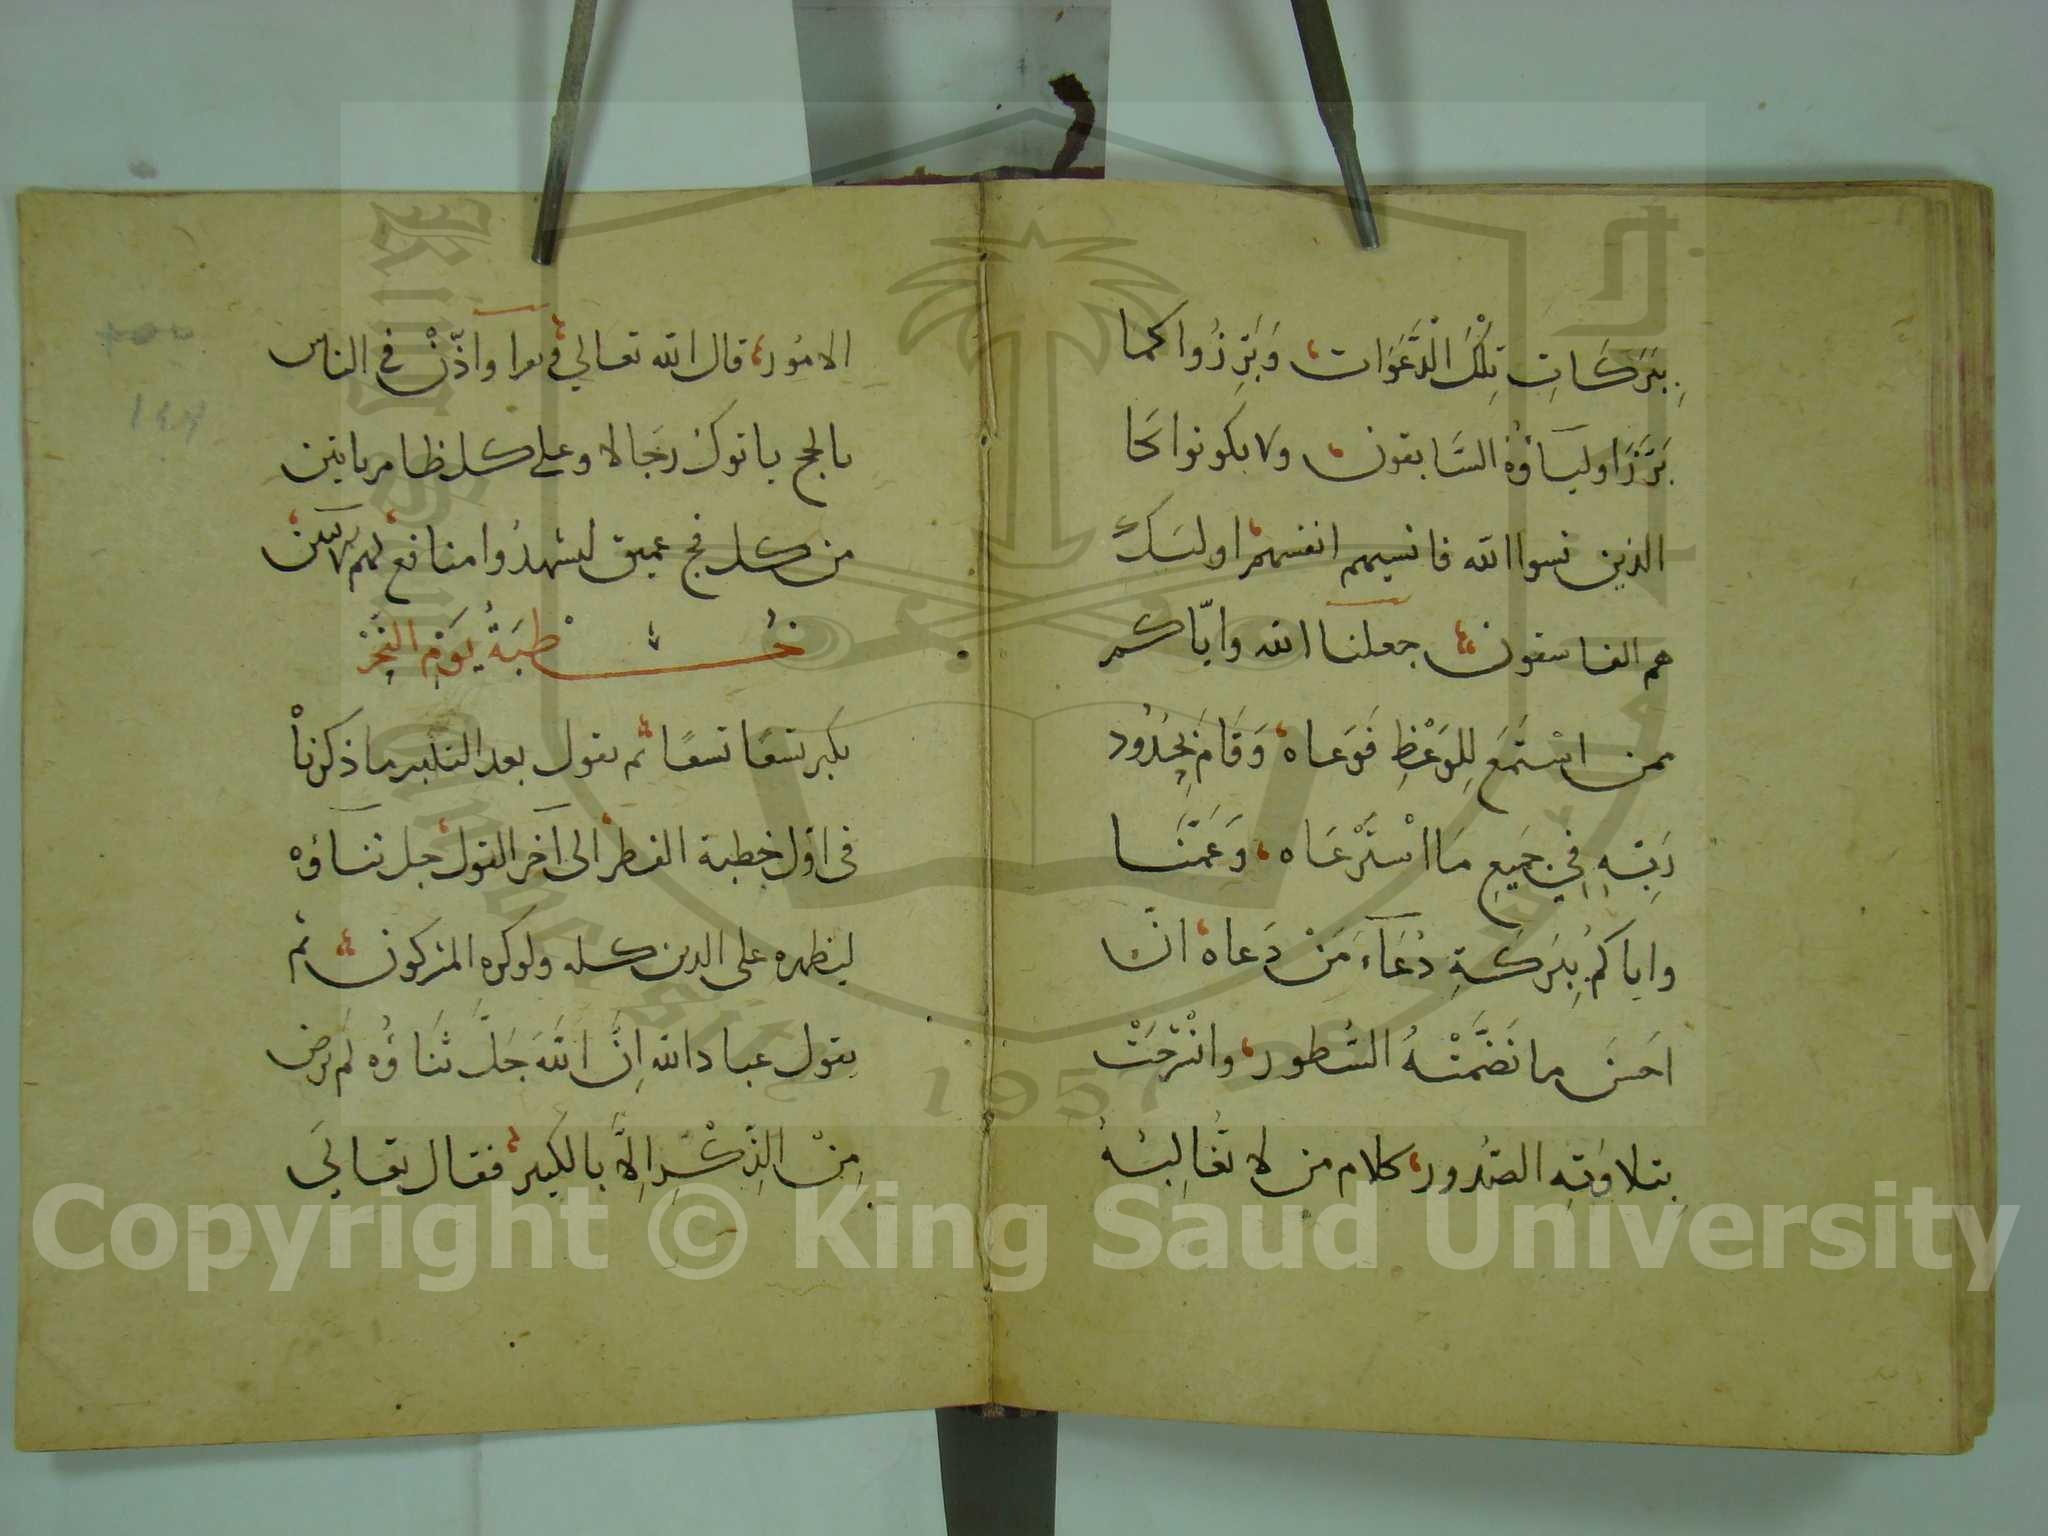 بِبَرَكَاتِ تِلْكَ الْدَّعَوَات، وَبَرِّزُوا كما
بَرَّزَ اوليَآؤُهُ السَّابقون، ولا تكونوا كا
الذين نسوا الله فانسيهم انفسهم، اولئك
هم الفاسقون جعلنا الله واياّكم
ممن اسْتَمَعَ لِلوَعْظِ فَوَعاه، وَقَامَ بِحُدُودِ
رَبِّهِ فِي جَميَعِ مَا اسْتَرْعَاه، وَعَمَّنَا
واياكمُ بِبَركَةِ دُعَآءَ مَنْ دَعاه، انّ
احَسنَ ما تَضَمَّنَتْهُ السُّطور، وانْشَرَحَتْ
بِتلاوَتِهِ الصُّدور، كلام من لا تُغَالِبُهُ
الامُور، قال الله تعالي، وَاَذِّنْ في الناس
بالحج ياتوك رجَالا وعلى كل ظامر ياتين
من كل فج عميق ليشهدُوا منافع لهم
خُطبَةُ يَوْمِ النَّحِرْ
يكبر تسعًا تسعًا ثم يقول بعد التكبير ما ذكرناْ
فى اوّل خطبة الفطر الى آخر القول جل ثنآؤه
ليظهره على الدين كله ولو كره المشركون ثم
يقول عباد الله اِنَّ اللَّهَ جَلَّ ثَنَاؤُه لَم يرض
مِنْ الذِّكْرِ اِلاَّ بالكَثِير، فقال تعالَي
١٤٢
Copyright © King Saud University
1957